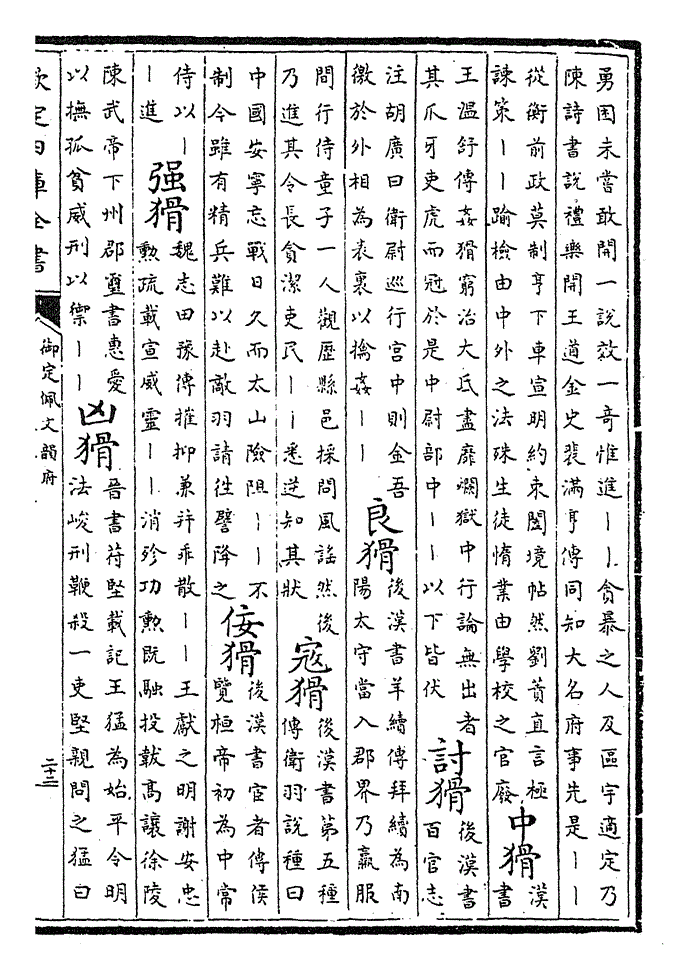 勇困未嘗敢開一說效一奇惟進||貪暴之人及區宇適定乃
陳詩書說禮樂開王道金史裴滿亨傳同知大名府事先是||
從衡前政莫制亨下車宣明約束闔境帖然劉蕡直言極
諫策||踰檢由中外之法殊生徒惰業由學校之官廢
中猾
漢
書
王溫舒傳姦猾窮治大氐盡靡爛獄中行論無出者
其爪牙吏虎而冠於是中尉部中||以下皆伏
討猾
後漢書
百官志
注胡廣曰衛尉巡行宮中則金吾
徼於外相為表裏以擒姦||
良猾
後漢書羊續傳拜續為南
陽太守當入郡界乃羸服
間行侍童子一人觀歷縣邑採問風謠然後
乃進其令長貪潔吏民||悉逆知其狀
寇猾
後漢書第五種
傳衛羽說種曰
中國安寧忘戰日久而太山險阻||不
制今雖有精兵難以赴敵羽請往譬降之
佞猾
後漢書宦者傳侯
覽桓帝初為中常
侍以|
|進
强猾
魏志田豫傳摧抑兼并乖散||王獻之明謝安忠
勲疏載宣威靈||消殄功勲既融投韍高讓徐陵
陳武帝下州郡璽書惠愛
以撫孤貧威刑以禦||
凶猾
晉書苻堅載記王猛為始平令明
法峻刑鞭殺一吏堅親問之猛曰
欽定四庫全書
御定佩文韻府
二十二